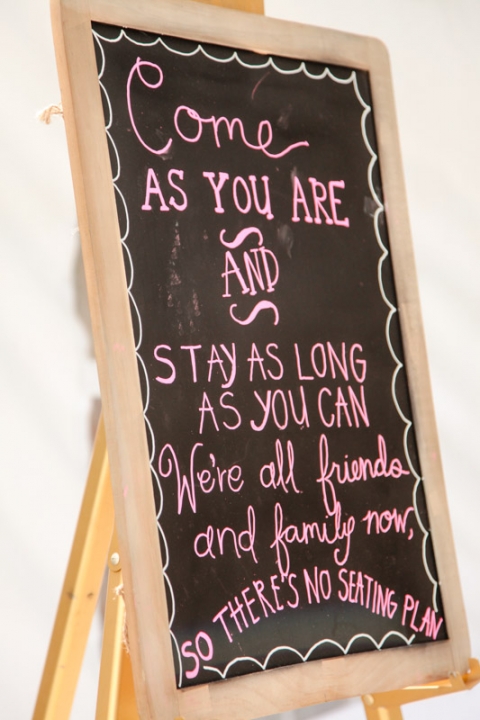 Come
AS YOU ARE
AND
STAY AS LONG
AS YOU CAN
We're all friends
and family now,
SO THERE'S NO SEATING PLAN